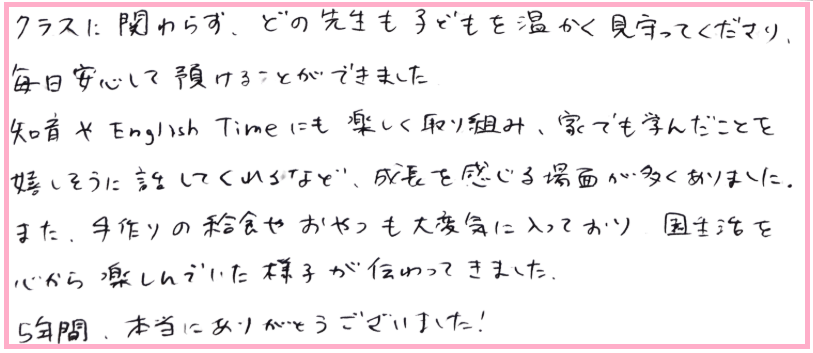 クラスに関わらず、どの先生も子どもを温かく見守ってくださり、
毎日安心して預けることができました
知育やEnglish Timeにも楽しく取り組み、家でも学んだことを
嬉しそうに話してくれるなど、成長を感じる場面が多くありました。
また、手作りの給食やおやつも大変気に入っており 園生活を
心から楽しんでいた様子が伝わってきました。
5年間、本当にありがとうございました!